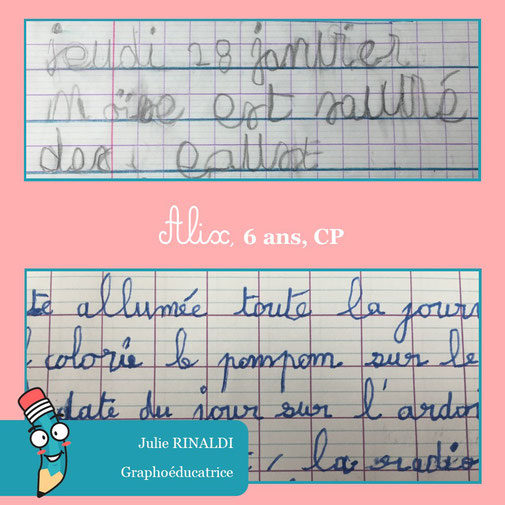 jeudi 28 janvier
Moïse est sauvé
des eaux
Alix, 6 ans, CP
te allumée toute la journ
colorie le pompom sur le
date du jour sur l'ardoi
la radio
Julie RINALDI
Graphoéducatrice